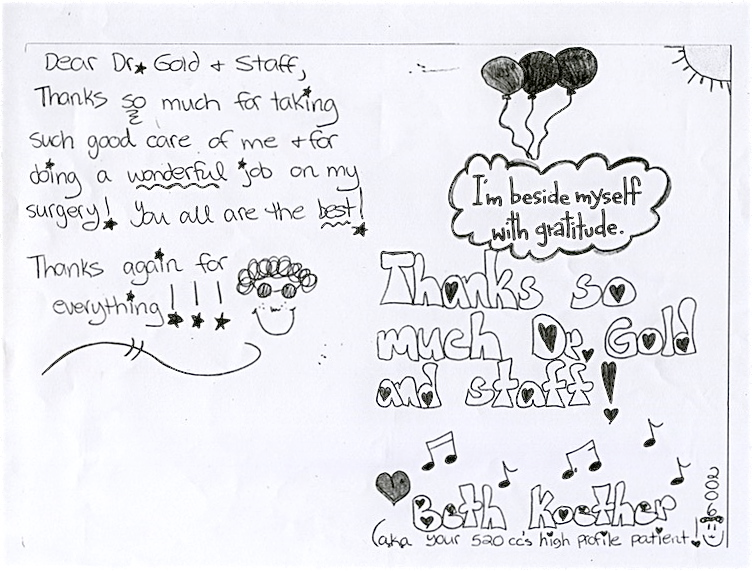 Dear Dr. Gold + Staff,
Thanks so much for taking
such good care of me + for
doing a wonderful job on my
surgery! You all are the best!
Thanks again for
everything!!!
I'm beside myself
with gratitude.
Thanks so
much Dr. Gold
and staff!
Beth Koether
2009
(aka your 520 cc's high profile patient!